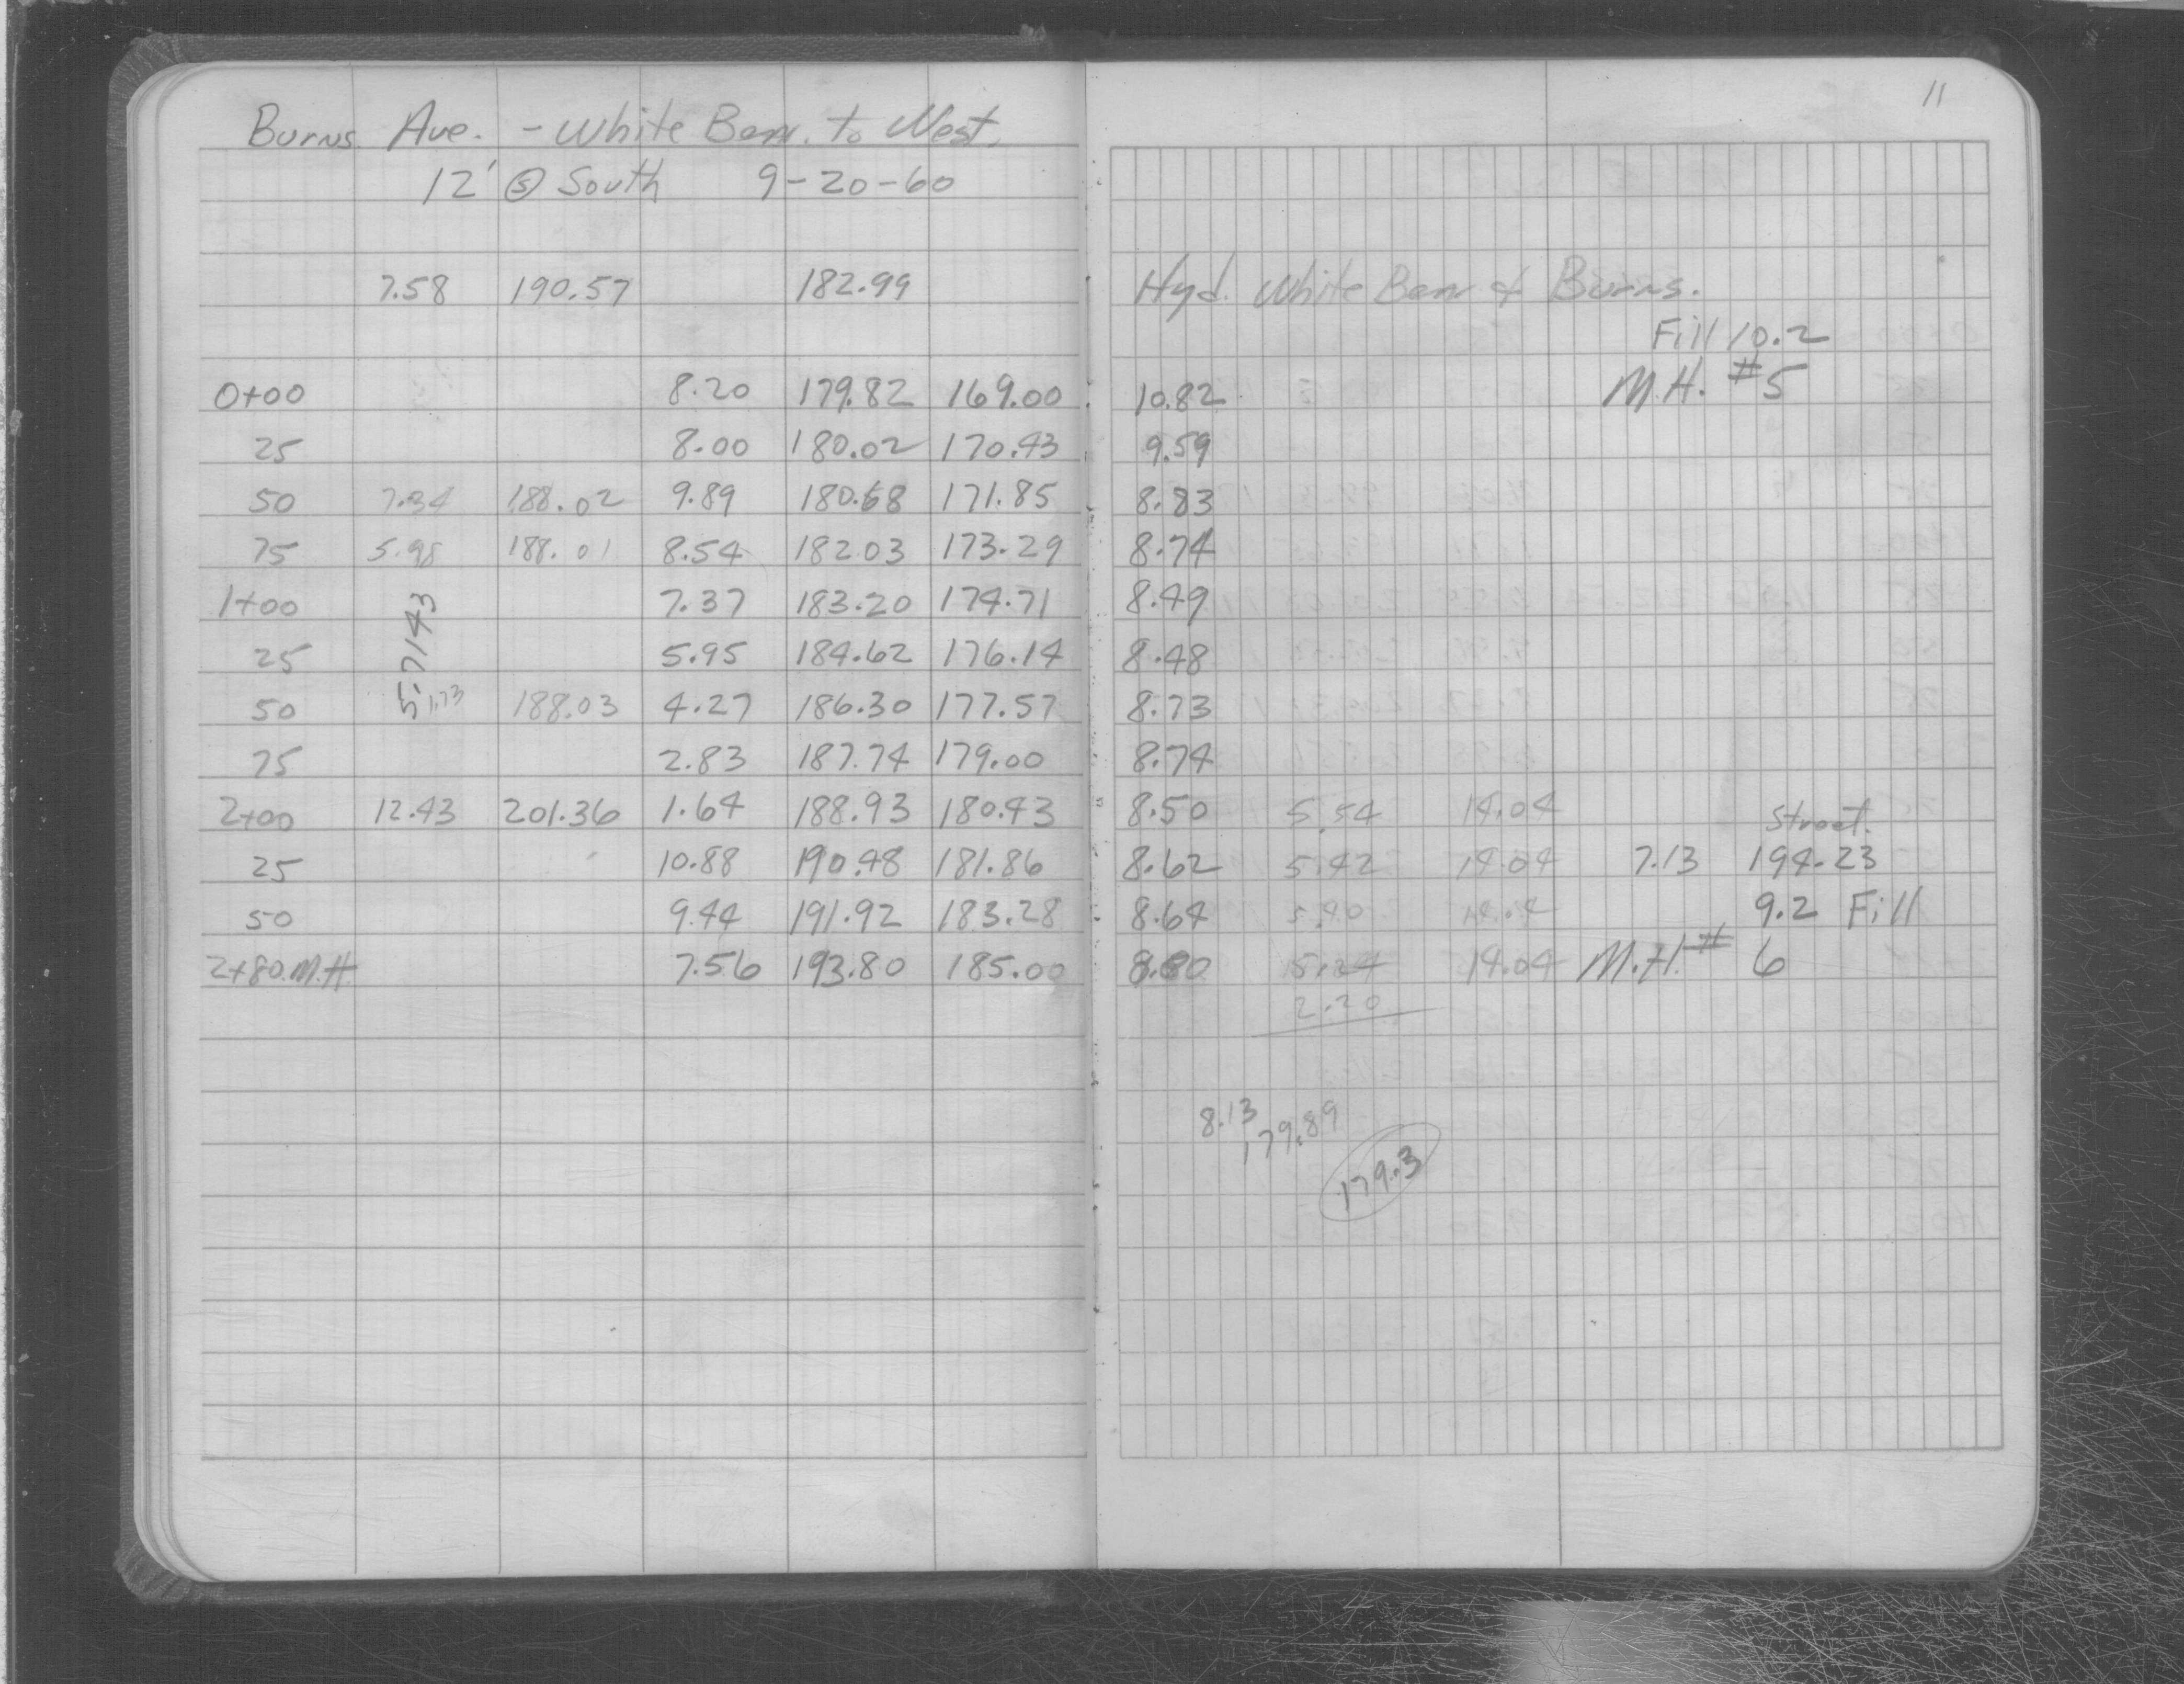 11
Burns Ave. - White Bear. to West.
12' @ South 9-20-60
7.58 190.57 182.99 Hyd. White Bear & Burns.
Fill 10.2
0+00 8.20 179.82 169.00 10.82 M.H. #5
25 8.00 180.02 170.43 9.59
50 7.34 188.02 9.89 180.68 171.85 8.83
75 5.98 188.01 8.54 182.03 173.29 8.74
1+00 7.37 183.20 174.71 8.49
5.7143
25 5.95 184.62 176.14 8.48
50 1.73 188.03 4.27 186.30 177.57 8.73
75 2.83 187.74 179.00 8.74
2+00 12.43 201.36 1.64 188.93 180.43 8.50 5.54 14.04 Street.
25 10.88 190.48 181.86 8.62 5.42 14.04 7.13 194.23
50 9.44 191.92 183.28 8.64 5.40 14.04 9.2 Fill
2+80 M.H. 7.56 193.80 185.00 8.80 5.24 14.04 M.H. # 6
2.20
8.13
179.89
179.3